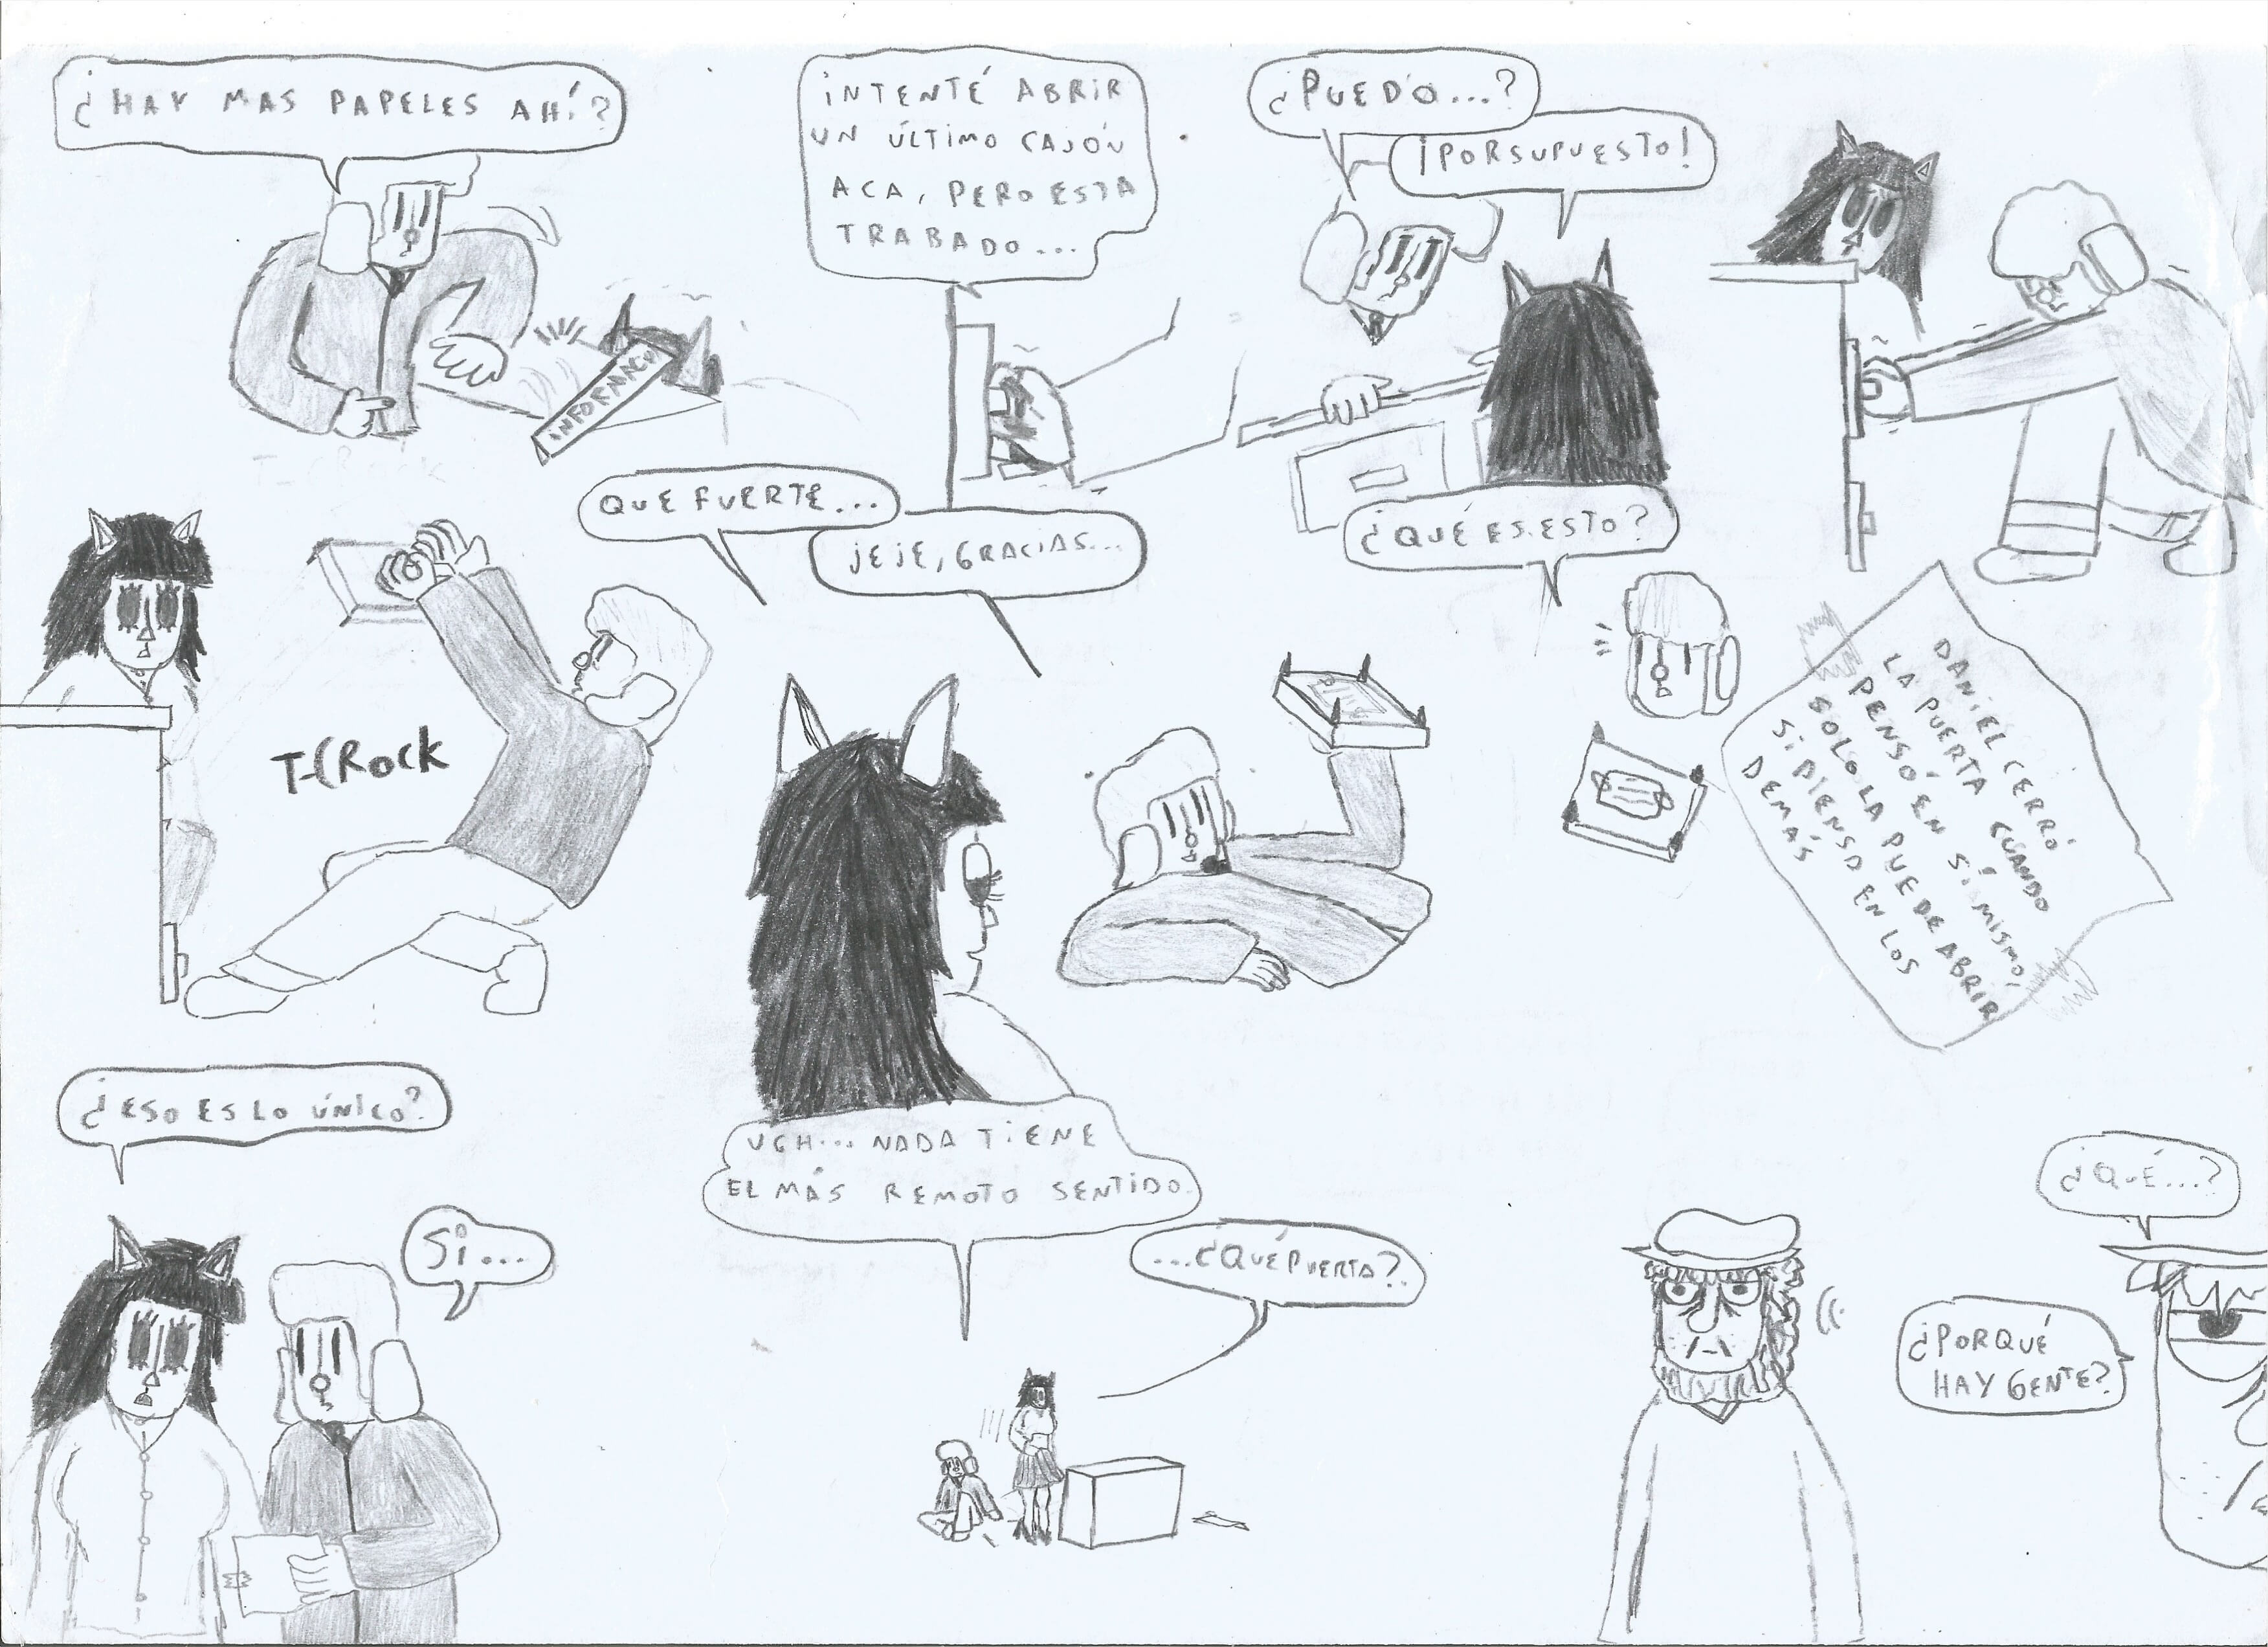 ¿HAY MAS PAPELES AHÍ?
INTENTÉ ABRIR
UN ÚLTIMO CAJÓN
ACA, PERO ESTA
TRABADO...
¿PUEDO...?
¡PORSUPUESTO!
T-CROCK
QUE FUERTE...
JEJE, GRACIAS...
¿QUÉ ES ESTO?
DANIEL CERRÓ
LA PUERTA CUANDO
PENSÓ EN SÍ MISMO,
SOLO LA PUEDE ABRIR
SI PIENSA EN LOS
DEMÁS
¿ESO ES LO ÚNICO?
SI...
UGH... NADA TIENE
EL MÁS REMOTO SENTIDO.
...¿QUÉ PUERTA?
¿QUÉ...?
¿PORQUÉ
HAY GENTE?